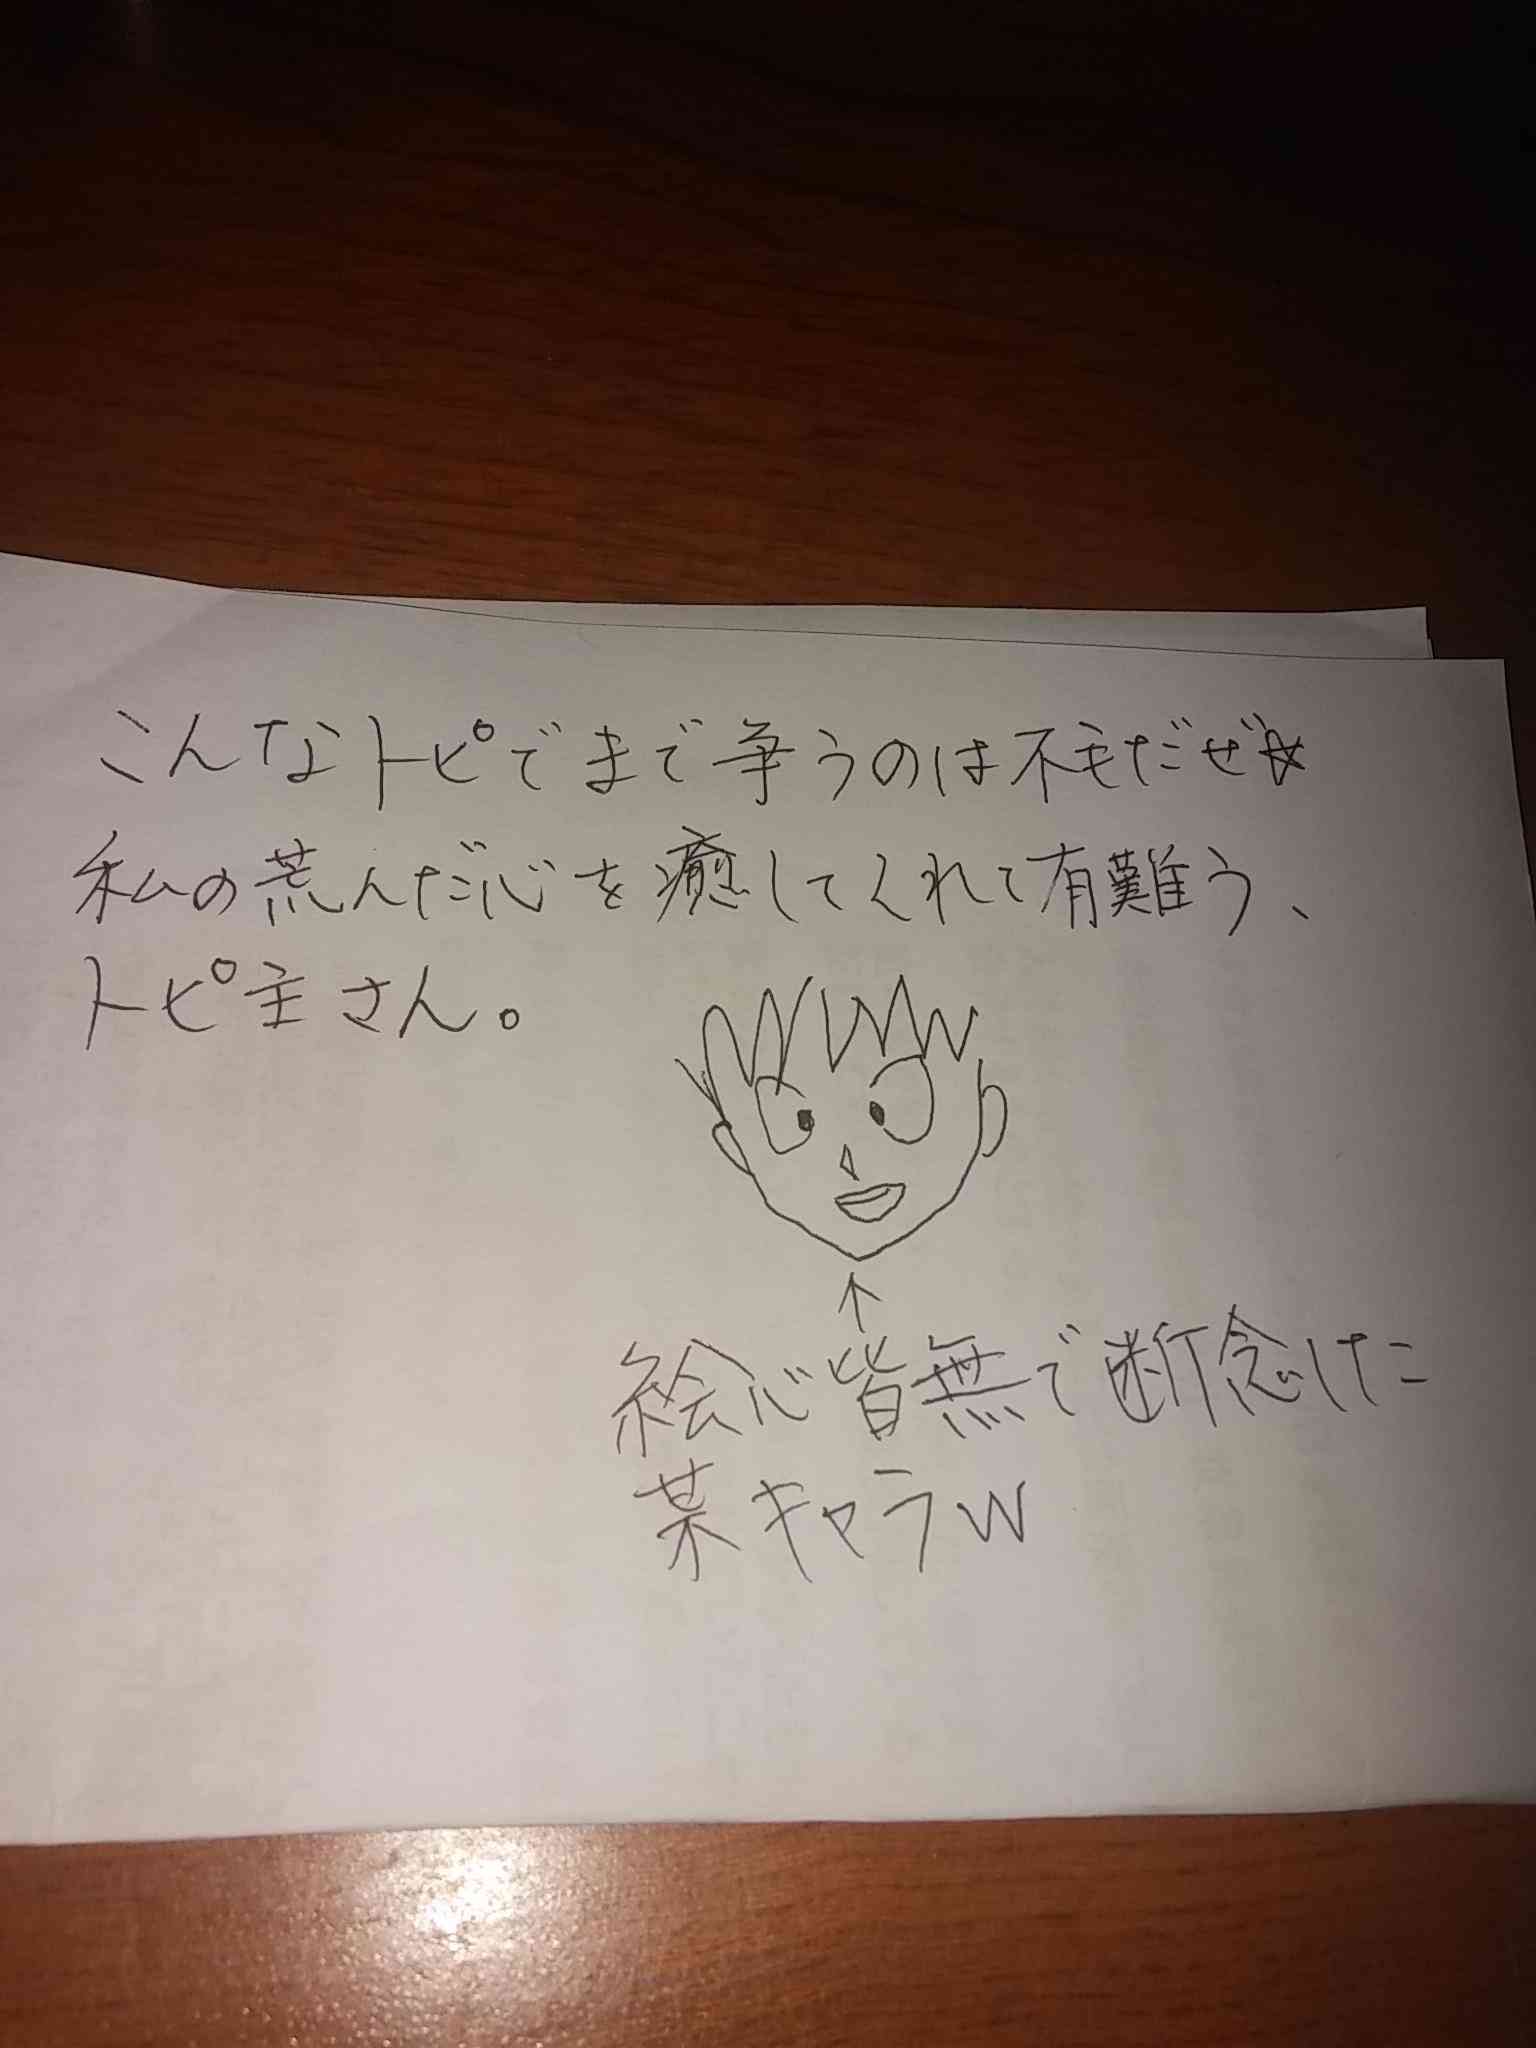 こんなトピでまで争うのは不毛だぜ☆
私の荒んだ心を癒してくれて有難う、
トピ主さん。
↑
絵心皆無で断念した
某キャラw